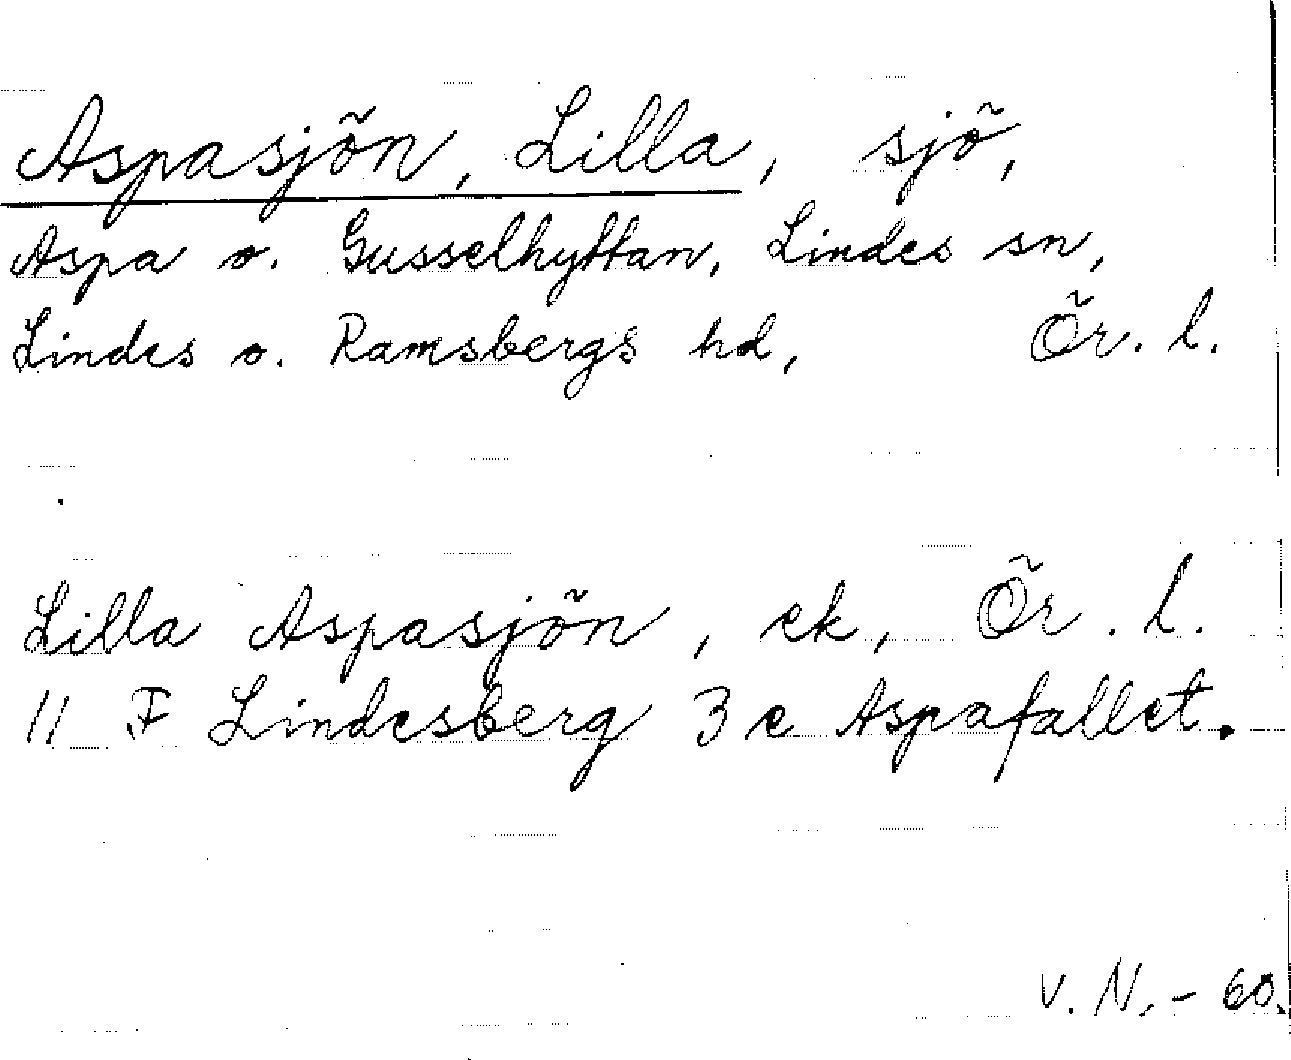 Aspasjön, Lilla, sjö,
Aspa o. Gusselhyttan, Lindes sn,
Lindes o. Ramsbergs hd, Ör. l.
Lilla Aspasjön, ek, Ör. l.
11 F Lindesberg 3 e Aspafallet.
V. N. - 60.